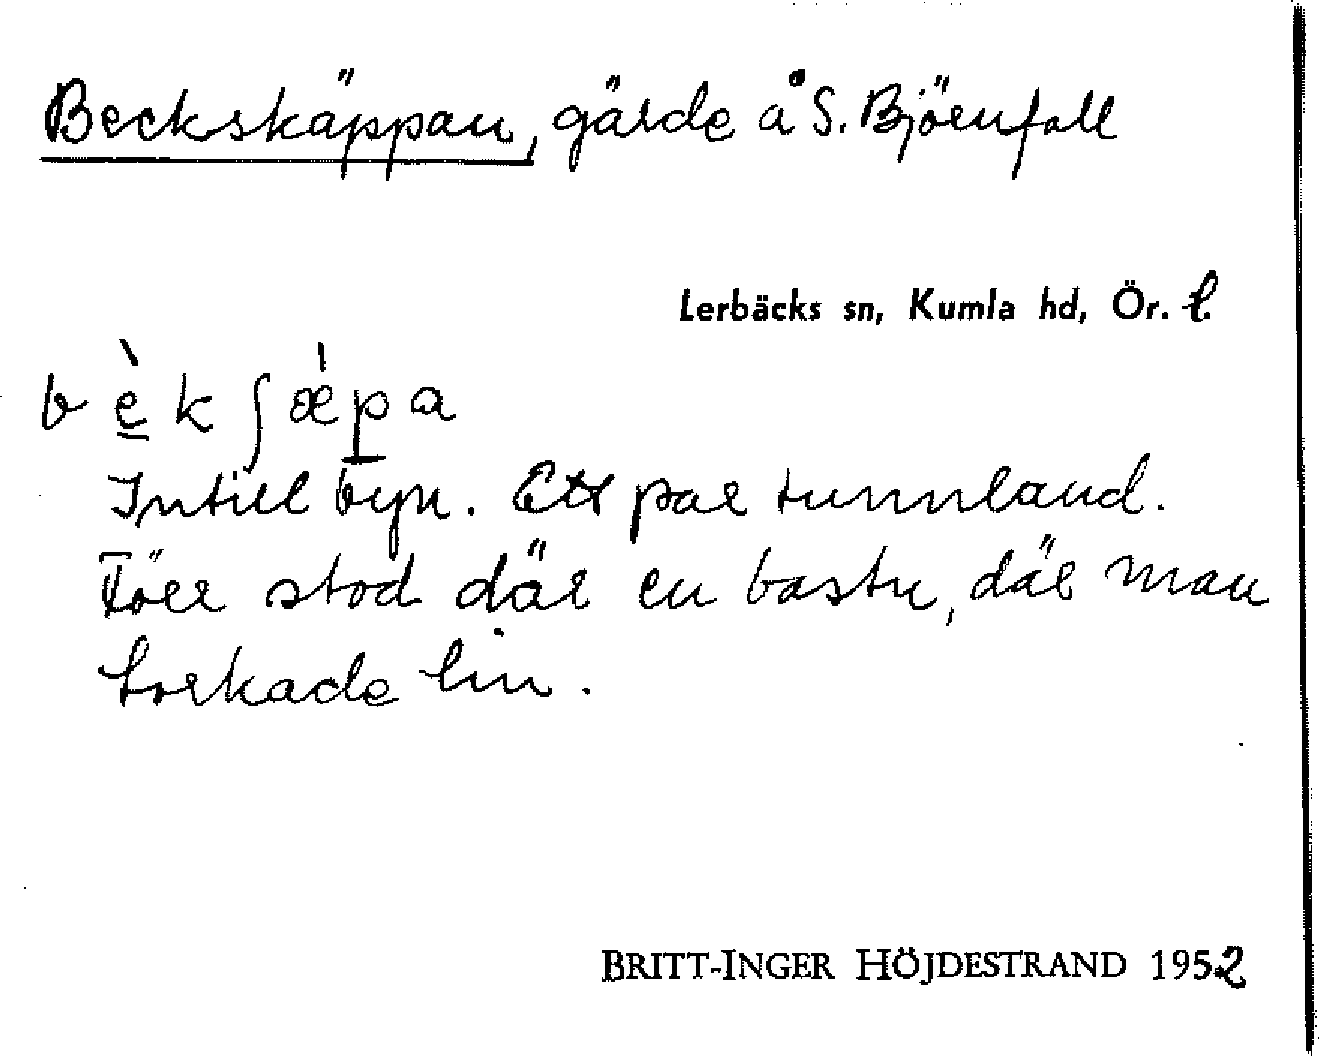 Beckskäppan, gärde å S. Björnfall
Lerbäcks sn, Kumla hd, Ör. l.
bè̱kʃæ̀p̱a
Intill byn. Ett par tunnland.
Förr stod där en bastu, där man
torkade lin.
BRITT-INGER HÖJDESTRAND 1952